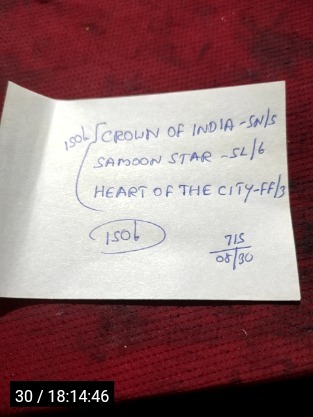 1506 CROWN OF INDIA - SN/5
SAMOON STAR - SL/6
HEART OF THE CITY - FF/3
1506
715
08/30
30 / 18:14:46